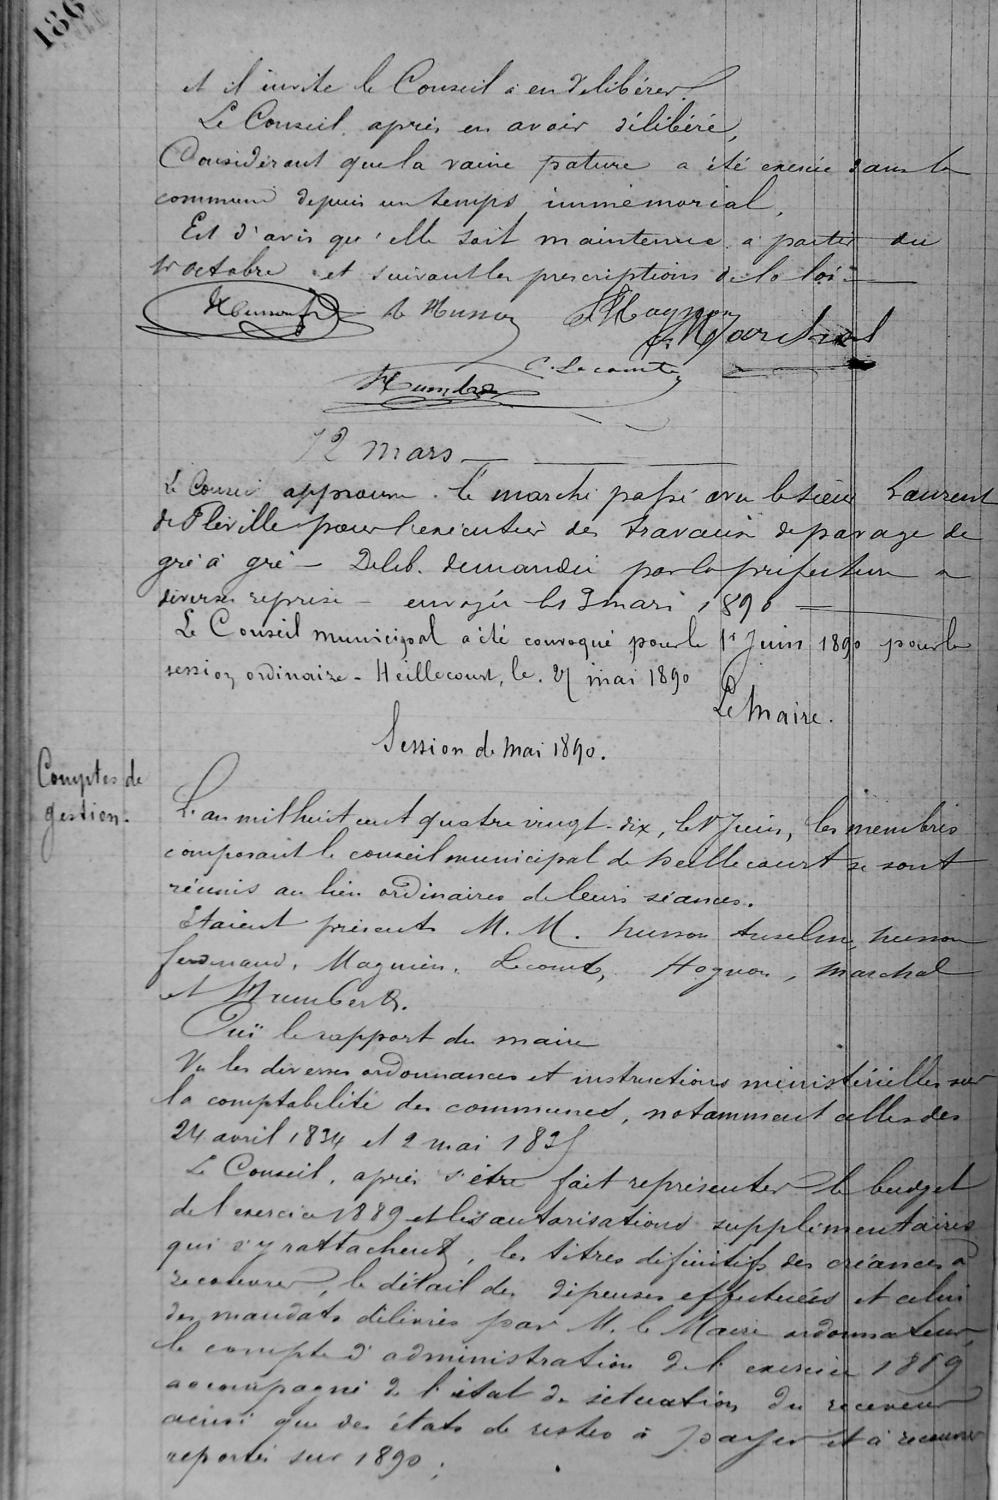 186
et il invite le Conseil à en délibérer.
Le Conseil, après en avoir délibéré,
Considérant que la vaine pature a été exercée dans la
commune depuis un temps immémorial,
Est d'avis qu'elle soit maintenue à partir du
1er octobre et suivant les prescriptions de la loi.
Husson fd A Husson Magnien Marchal
C. Lecomte
Humbert
12 mars
Le Conseil approuve le marché passé avec le sieur Laurent
de Fléville pour l'exécution des travaux de pavage de
gré à gré - Délib. demandée par la préfecture à
diverses reprise - envoyée les 9 mars 1890
Le Conseil municipal a été convoqué pour le 1er Juin 1890 pour la
session ordinaire - Heillecourt, le 27 mai 1890
Le Maire.
Session de Mai 1890.
Comptes de
gestion.
L'an mil huit cent quatre vingt-dix, le 1er Juin, les membres
composant le conseil municipal de heillecourt se sont
réunis au lieu ordinaires de leurs séances.
Etaient présents M. M. husson Anselme, husson
ferdinand, Magnien, Lecomte, Hognon, Marchal
et Humbert.
Ouï le rapport du maire
Vu les diverses ordonnances et instructions ministérielles sur
la comptabilité des communes, notamment celles des
24 avril 1834 et 2 mai 1835
Le Conseil, après s'être fait représenter le budget
de l'exercice 1889 et les autorisations supplémentaires
qui s'y rattachent, les titres définitifs des créances à
recouvrer, le détail des dépenses effectuées et celui
des mandats délivrés par M. le Maire ordonnateur,
le compte d'administration de l'exercice 1889
accompagné de l'état de situation du receveur
ainsi que des états de restes à payer et à recouvrer
reportés sur 1890 ;